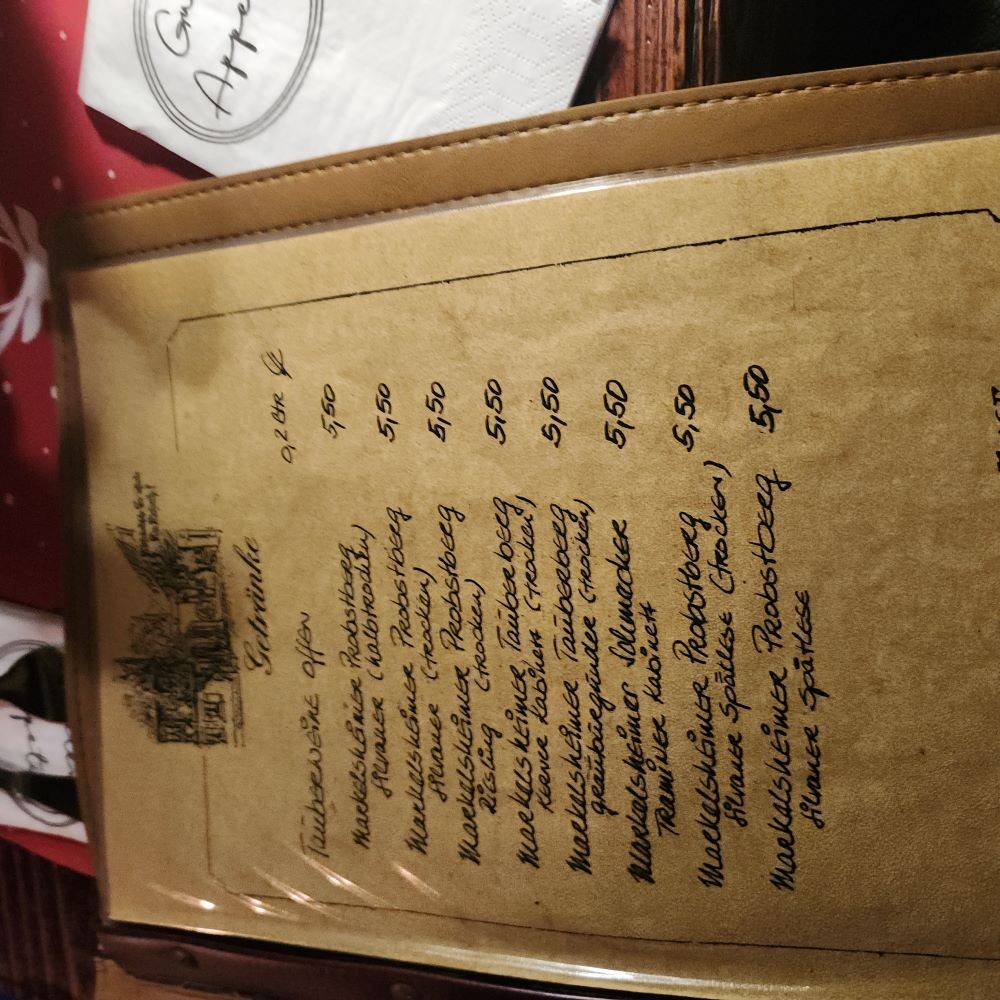 Gu
Appe
Getränke
Tauberweine offen 0,2 Ltr €
Markelsheimer Probstberg 5,50
Silvaner (halbtrocken)
Markelsheimer Probstberg 5,50
Silvaner (trocken)
Markelsheimer Probstberg 5,50
Riesling (trocken)
Markelsheimer Tauberberg 5,50
Kerner Kabinett (trocken)
Markelsheimer Tauberberg 5,50
Grauburgunder (trocken)
Markelsheimer 5,50
Traminer Kabinett
Markelsheimer Probstberg 5,50
Silvaner Spätlese (trocken)
Markelsheimer Probstberg 5,50
Silvaner Spätlese